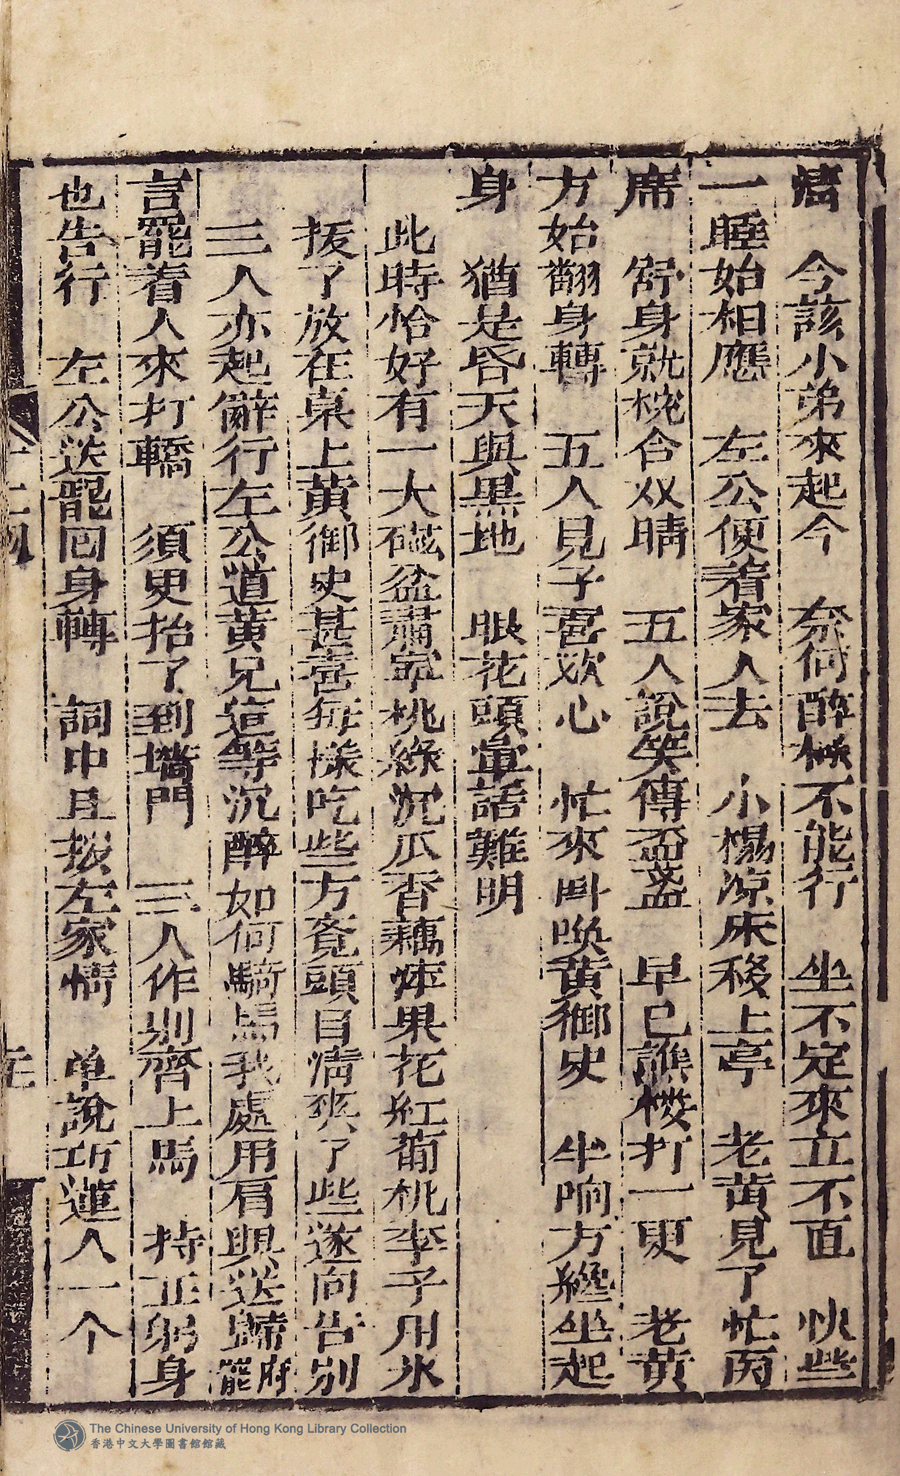 濟　今該小弟來起令　奈何醉極不能行　坐不定來立不直　快些
一睡始相應　左公便着家人去　小榻凉床移上亭　老黃見了忙丙
席　舒身就枕合双睛　五人說笑傳盃盞　早已譙楼打一更　老黃
方始翻身轉　五人見子喜欢心　忙來叫喚黃御史　半晌方纔坐起
身　猶是昏天與黑地　眼花頭暈語難明
此時恰好有一大磁盆肅寧桃綠沉瓜香藕苹果花紅葡桃李子用氷
拔了放在桌上黃御史甚喜每樣吃些方覔頭目清爽了些遂向告别
三人亦起辭行左公道黃兄這等沉醉如何騎馬我處用肩輿送歸府罷
言罷着人來打轎　須臾抬了到墻門　三人作别齊上馬　持正躬身
也告行　左公送罷囘身轉　詞中且拔左家情　单說巧蓮人一个
The Chinese University of Hong Kong Library Collection
香港中文大學圖書館館藏